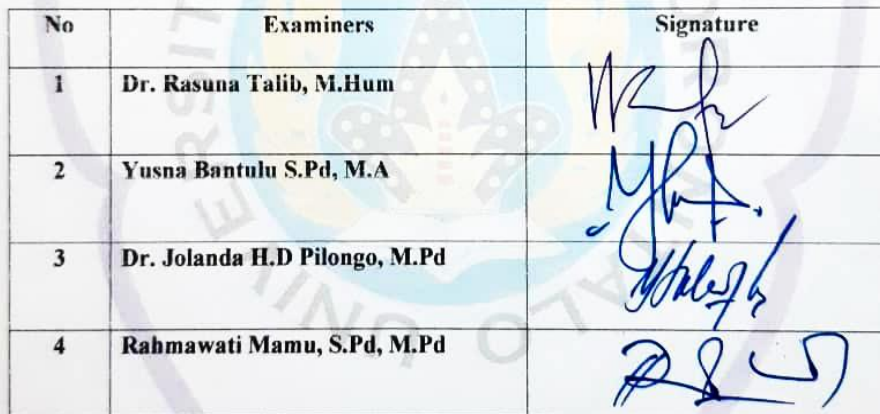 No Examiners Signature
1 Dr. Rasuna Talib, M.Hum
2 Yusna Bantulu S.Pd, M.A
3 Dr. Jolanda H.D Pilongo, M.Pd
4 Rahmawati Mamu, S.Pd, M.Pd